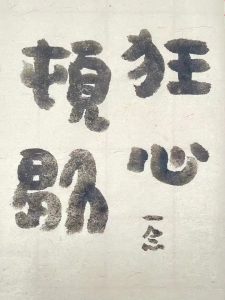 狂心一念
頓歇